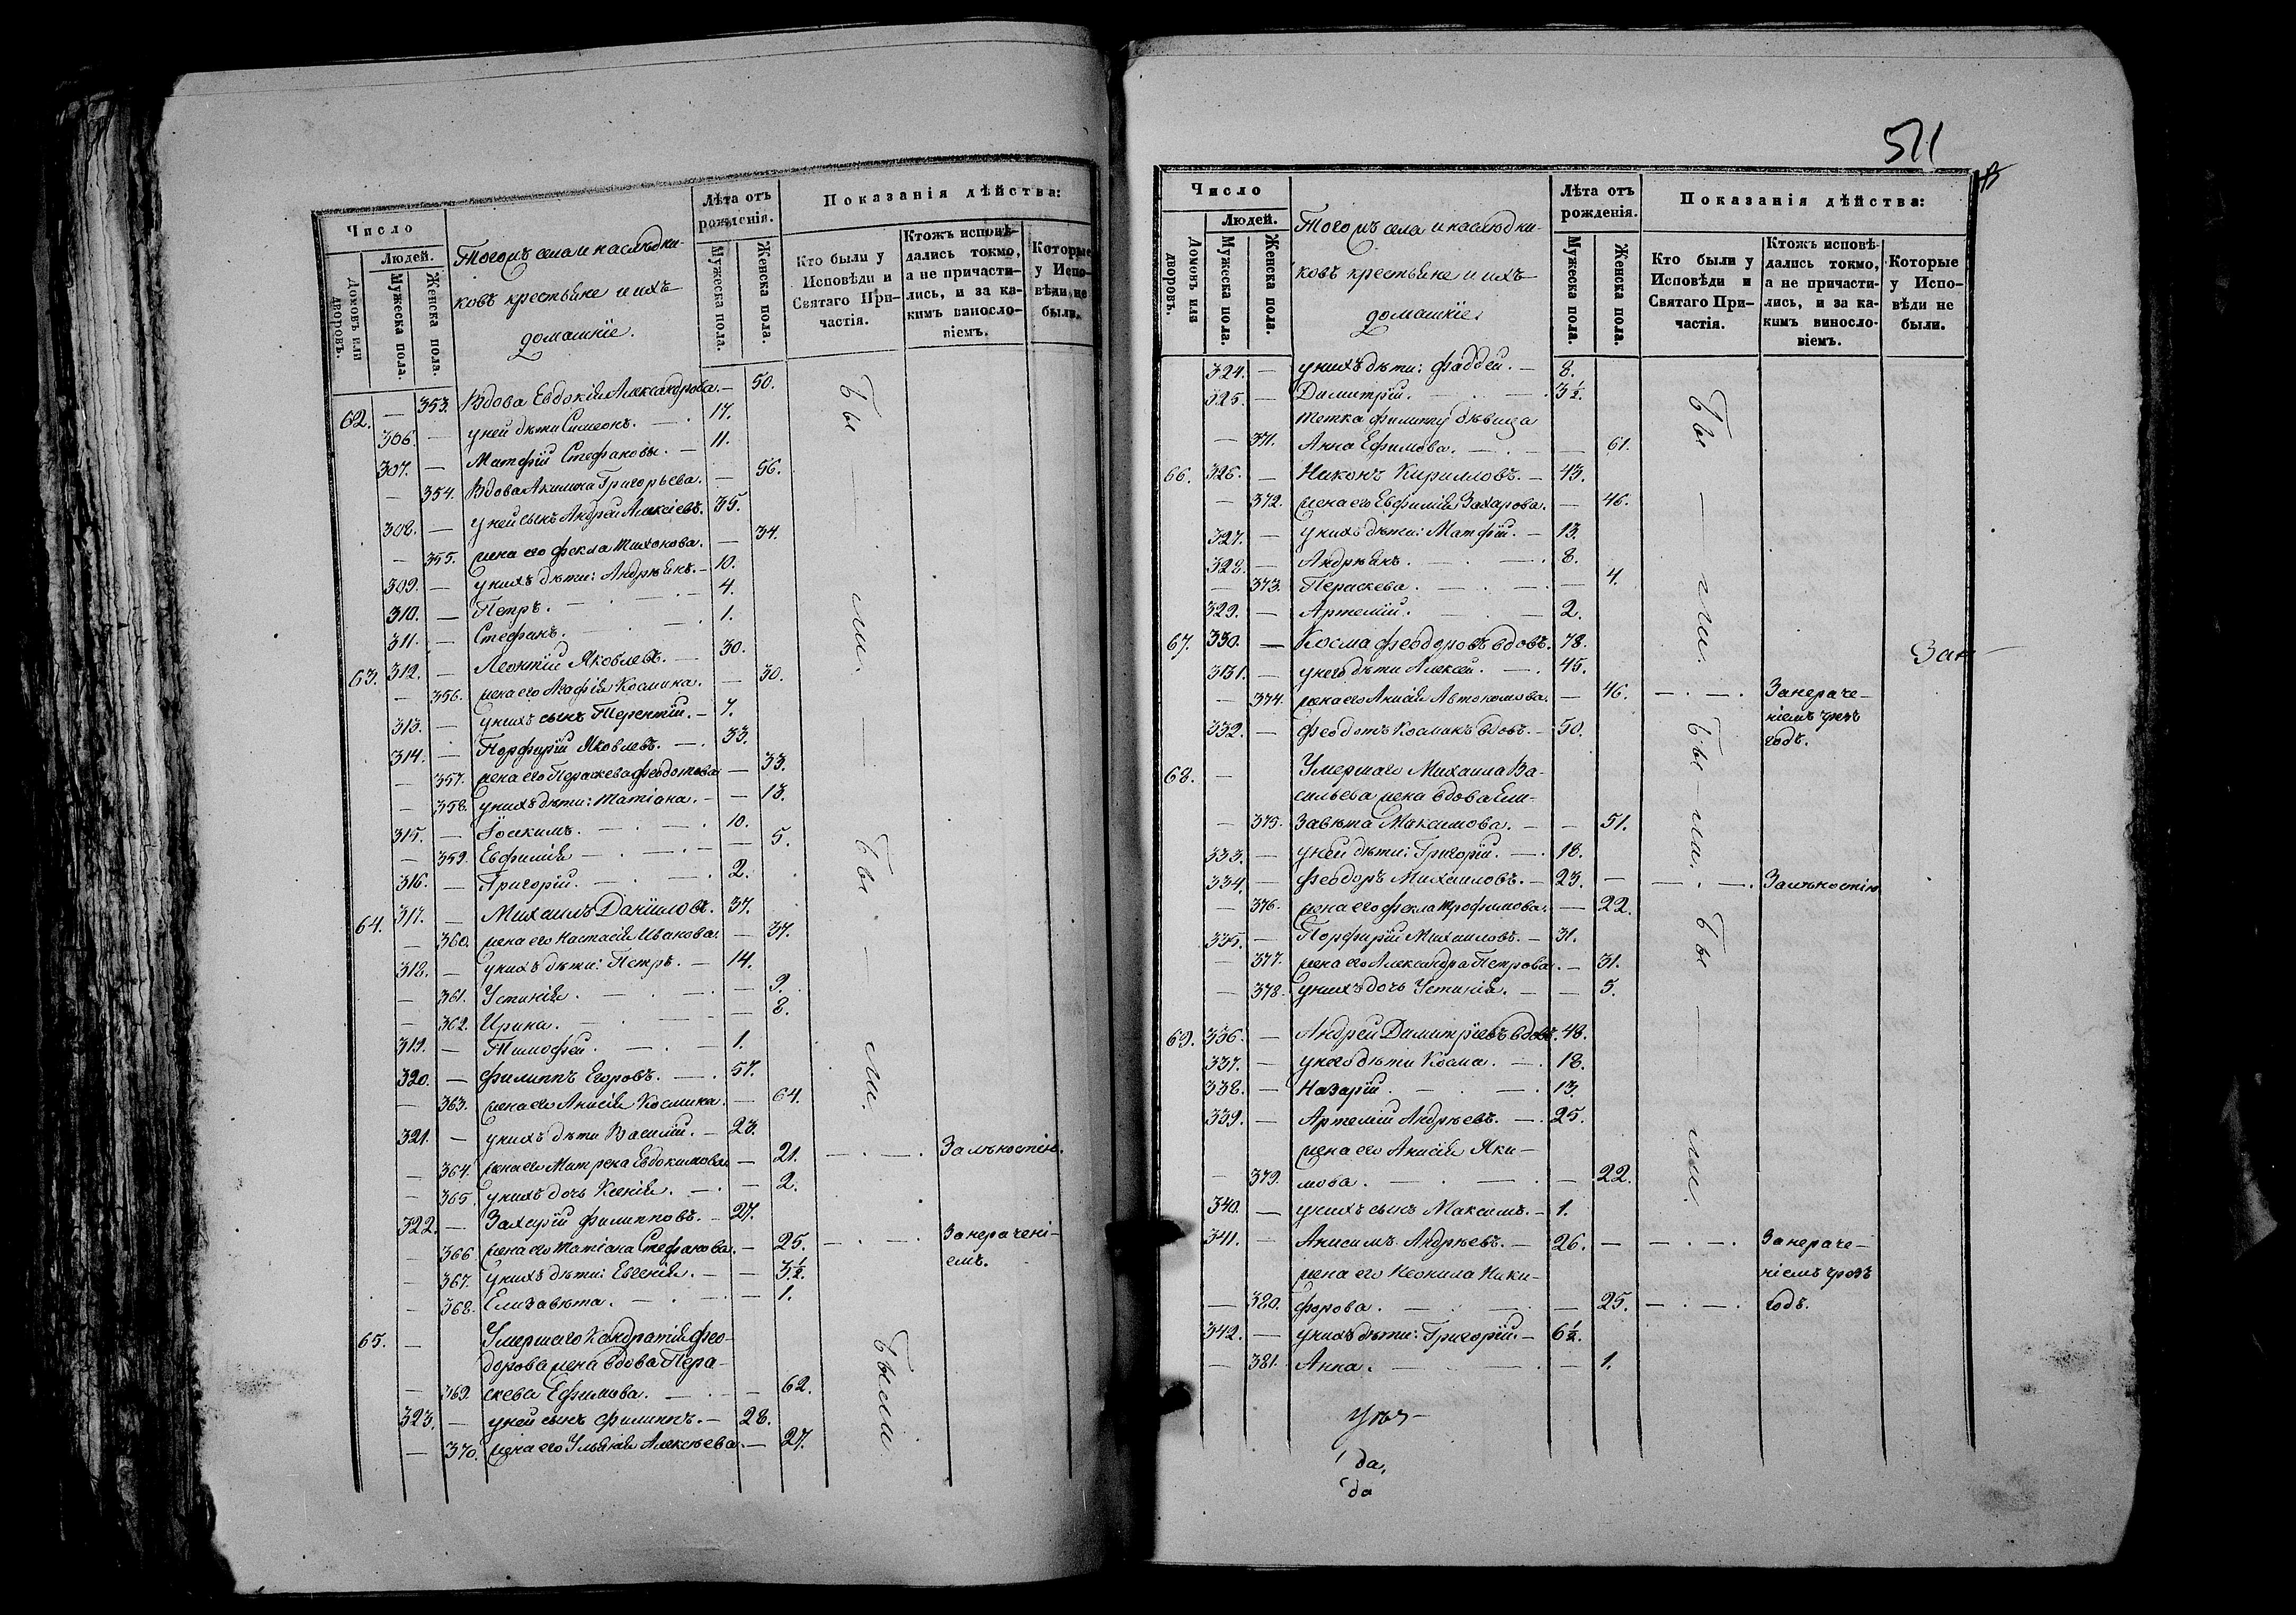 Число
Людей.
Домовъ или дворовъ.
Мужеска пола.
Женска пола.
Тогожъ села и наслѣдни-
ковъ крестьяне и ихъ
домашніе.
Лѣта отъ рожденія.
Мужеска пола.
Женска пола.
Показанія дѣйства:
Кто были у Исповѣди и Святаго При-частія.
Ктожъ исповѣ-дались токмо, а не причасти-лись, и за ка-кимъ виносло-віемъ.
Которые у Испо-вѣди не были.
62. — 353. Вдова Евдокія Александрова. — 50.
306. — у ней дѣти Симеонъ. — 17.
307. — Матфій Стефановы. — 11.
— 354. Вдова Акилина Григорьева. — 56.
308. — У ней сынъ Андрей Алексіевъ. 35.
— 355. жена его Фекла Тихонова. — 34.
309. — у нихъ дѣти: Андрѣянъ. — 10.
310. — Петръ. — 4.
311. — Стефанъ. — 1.
63. 312. — Леонтій Яковлевъ. — 30.
— 356. жена его Агафія Космина. — 30.
313. — у нихъ сынъ Терентій. — 7.
314. — Порфирій Яковлевъ. — 33.
— 357. жена его Параскева Феодотова — 33.
— 358. у нихъ дѣти: Татіана. — 13.
315. — Іоакимъ. — 10.
— 359. Евфимія — 5.
316. — Григорій. — 2.
64. 317. — Михаилъ Даніиловъ. 37.
— 360. жена его Настасія Иванова. — 37.
318. — у нихъ дѣти: Петръ. — 14.
— 361. Устинія. — 9.
— 362. Ирина. — 8.
319. — Тимофей. — 1.
320. — Филиппъ Егоровъ. — 57.
— 363. жена его Анисія Космина. — 64.
321. — у нихъ дѣти Василій. — 23.
— 364. жена его Матрена Евдокимова — 21. — . — . За мѣкостію.
— 365. у нихъ дочь Ксенія. — 2.
322. — Захарій Филипповъ. — 27.
— 366. жена его Татіана Стефанова. — 25. — . — . За нераченi-
емъ.
— 367. у нихъ дѣти: Евгенія. — 3½.
— 368. Елизавета. — 1.
65. — Умершаго Кондратія Фео-
дорова жена вдова Пара-
— 369. скева Ефимова. — 62.
323. — у ней сынъ Филиппъ. — 28.
— 370. жена его Ульянія Алексѣева — 27.
Бы — ли.
Бы — ли.
Были.
511
Число
Людей.
Домовъ или дворовъ.
Мужеска пола.
Женска пола.
Тогожъ села и наслѣдни-
ковъ крестьяне и ихъ
домашніе.
Лѣта отъ рожденія.
Мужеска пола.
Женска пола.
Показанія дѣйства:
Кто были у Исповѣди и Святаго При-частія.
Ктожъ исповѣ-дались токмо, а не причасти-лись, и за ка-кимъ винослo-віемъ.
Которые у Испо-вѣди не были.
324. — у нихъ дѣти: Фаддей. — 8.
325. — Димитрій. — 3½.
тетка Филиппу дѣвица
— 371. Анна Ефимова. — 61.
66. 326. — Никонъ Кирилловъ. — 43.
— 372. жена его Евфимія Захарова. — 46.
327. — у нихъ дѣти: Матфій. — 13.
328. — Андрѣянъ. — 8.
— 373. Пераскева. — 4.
329. — Артемій. — 2.
67. 330. — Косма Феодоровъ вдовъ. 78.
331. — у него дѣти Алексей. — 45.
— 374. жена его Анисія Автономова. — 46. — . — . За нераче-
ніемъ чрезъ
годъ.
332. — Феодотъ Косминъ вдовъ. — 50.
68. — Умершаго Михаила Ва-
сильева жена вдова Ели-
— 375. завѣта Максимова. — 51.
333. — у ней дѣти: Григорій. — 18.
334. — Феодоръ Михаиловъ. — 23. — . — . За мѣкостію
— 376. жена его Фекла Трофимова. — 22.
335. — Порфирій Михаиловъ. — 31.
— 377. жена его Александра Петрова. — 31.
— 378. у нихъ дочь Устинія. — 5.
69. 336. — Андрей Димитріевъ вдовъ. 48.
337. — у него дѣти Косма. — 18.
338. — Назарій. — 13.
339. — Артемій Андрѣевъ. — 25.
жена его Анисія Яки-
— 379. мова. — 22.
340. — у нихъ сынъ Максимъ. — 1.
341. — Анисимъ Андрѣевъ. — 26. — . — . За нераче-
жена его Неонила Ники- ніемъ чрезъ
— 380. форова. — 25. — . — . годъ.
342. — у нихъ дѣти: Григорій. — 6½.
— 381. Анна. — 1.
Бы — ли.
Бы — ли.
Бы — ли.
да,
да